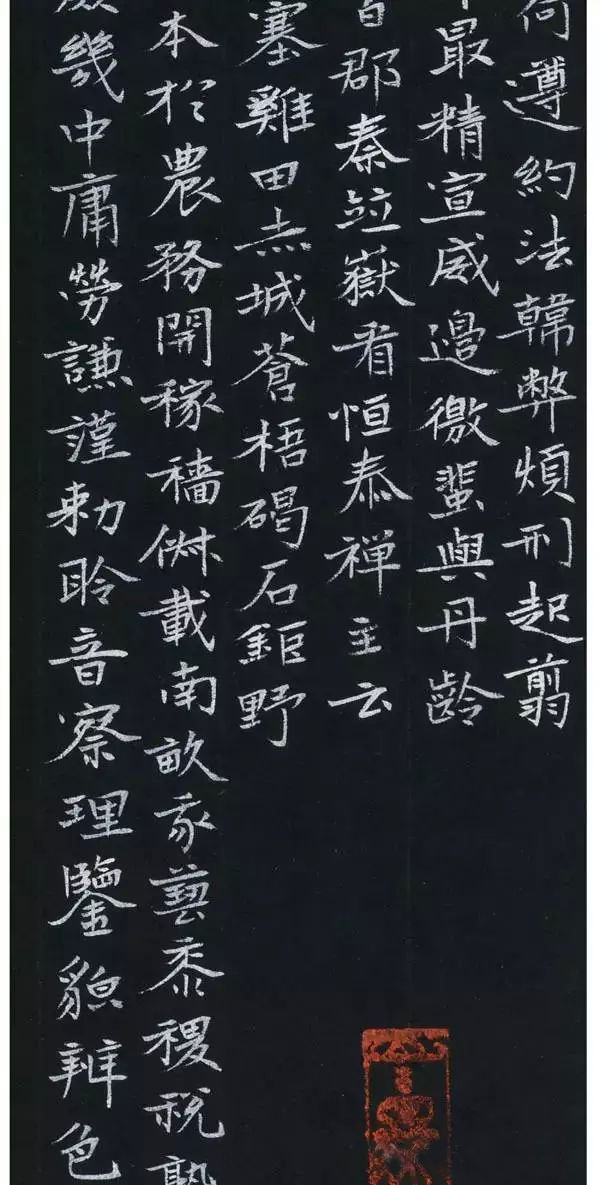 何遵約法韓弊煩刑起翦
最精宣威邊徼蜚與丹齡
百郡秦竝嶽看恒泰禪主云
塞雞田赤城蒼梧碣石鉅野
本於農務開稼穡俶載南畝我藝黍稷稅熟
幾中庸勞謙謹勅聆音察理鑒貌辨色